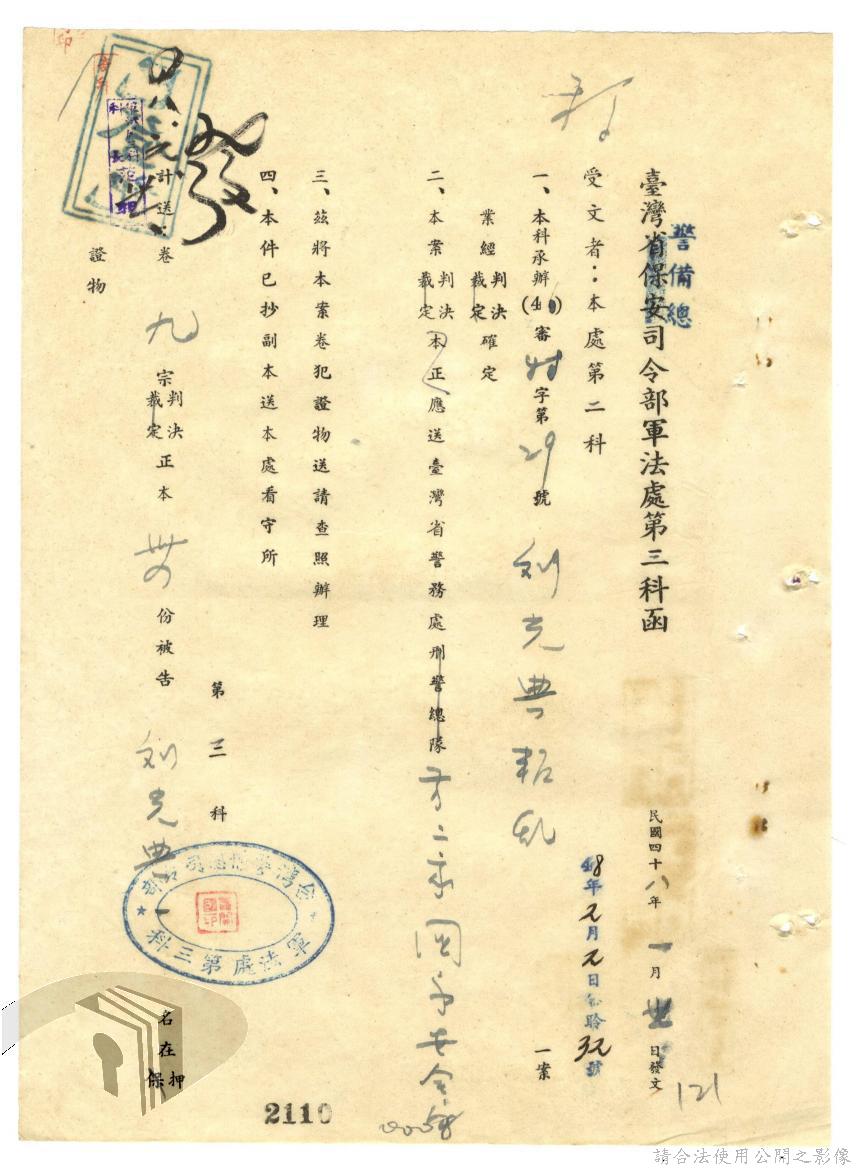 臺灣省保安司令部軍法處第三科函
警備總
民國四十八年一月 日發文
121
48年元月元日 聆32號
受文者：本處第二科
一、本科承辦(46)審 字第29號刘光典叛乱一案
業經判決裁定確定
二、本案判決裁定本正應送臺灣省警務處刑警總隊 國家安全局
三、茲將本案卷犯證物送請查照辦理
四、本件已抄副本送本處看守所
第三科
計送：卷九宗判決裁定正本 份被告刘光典一名在押保
證物
台灣警備總司令部
軍法處第三科
2110
0058
請合法使用公開之影像